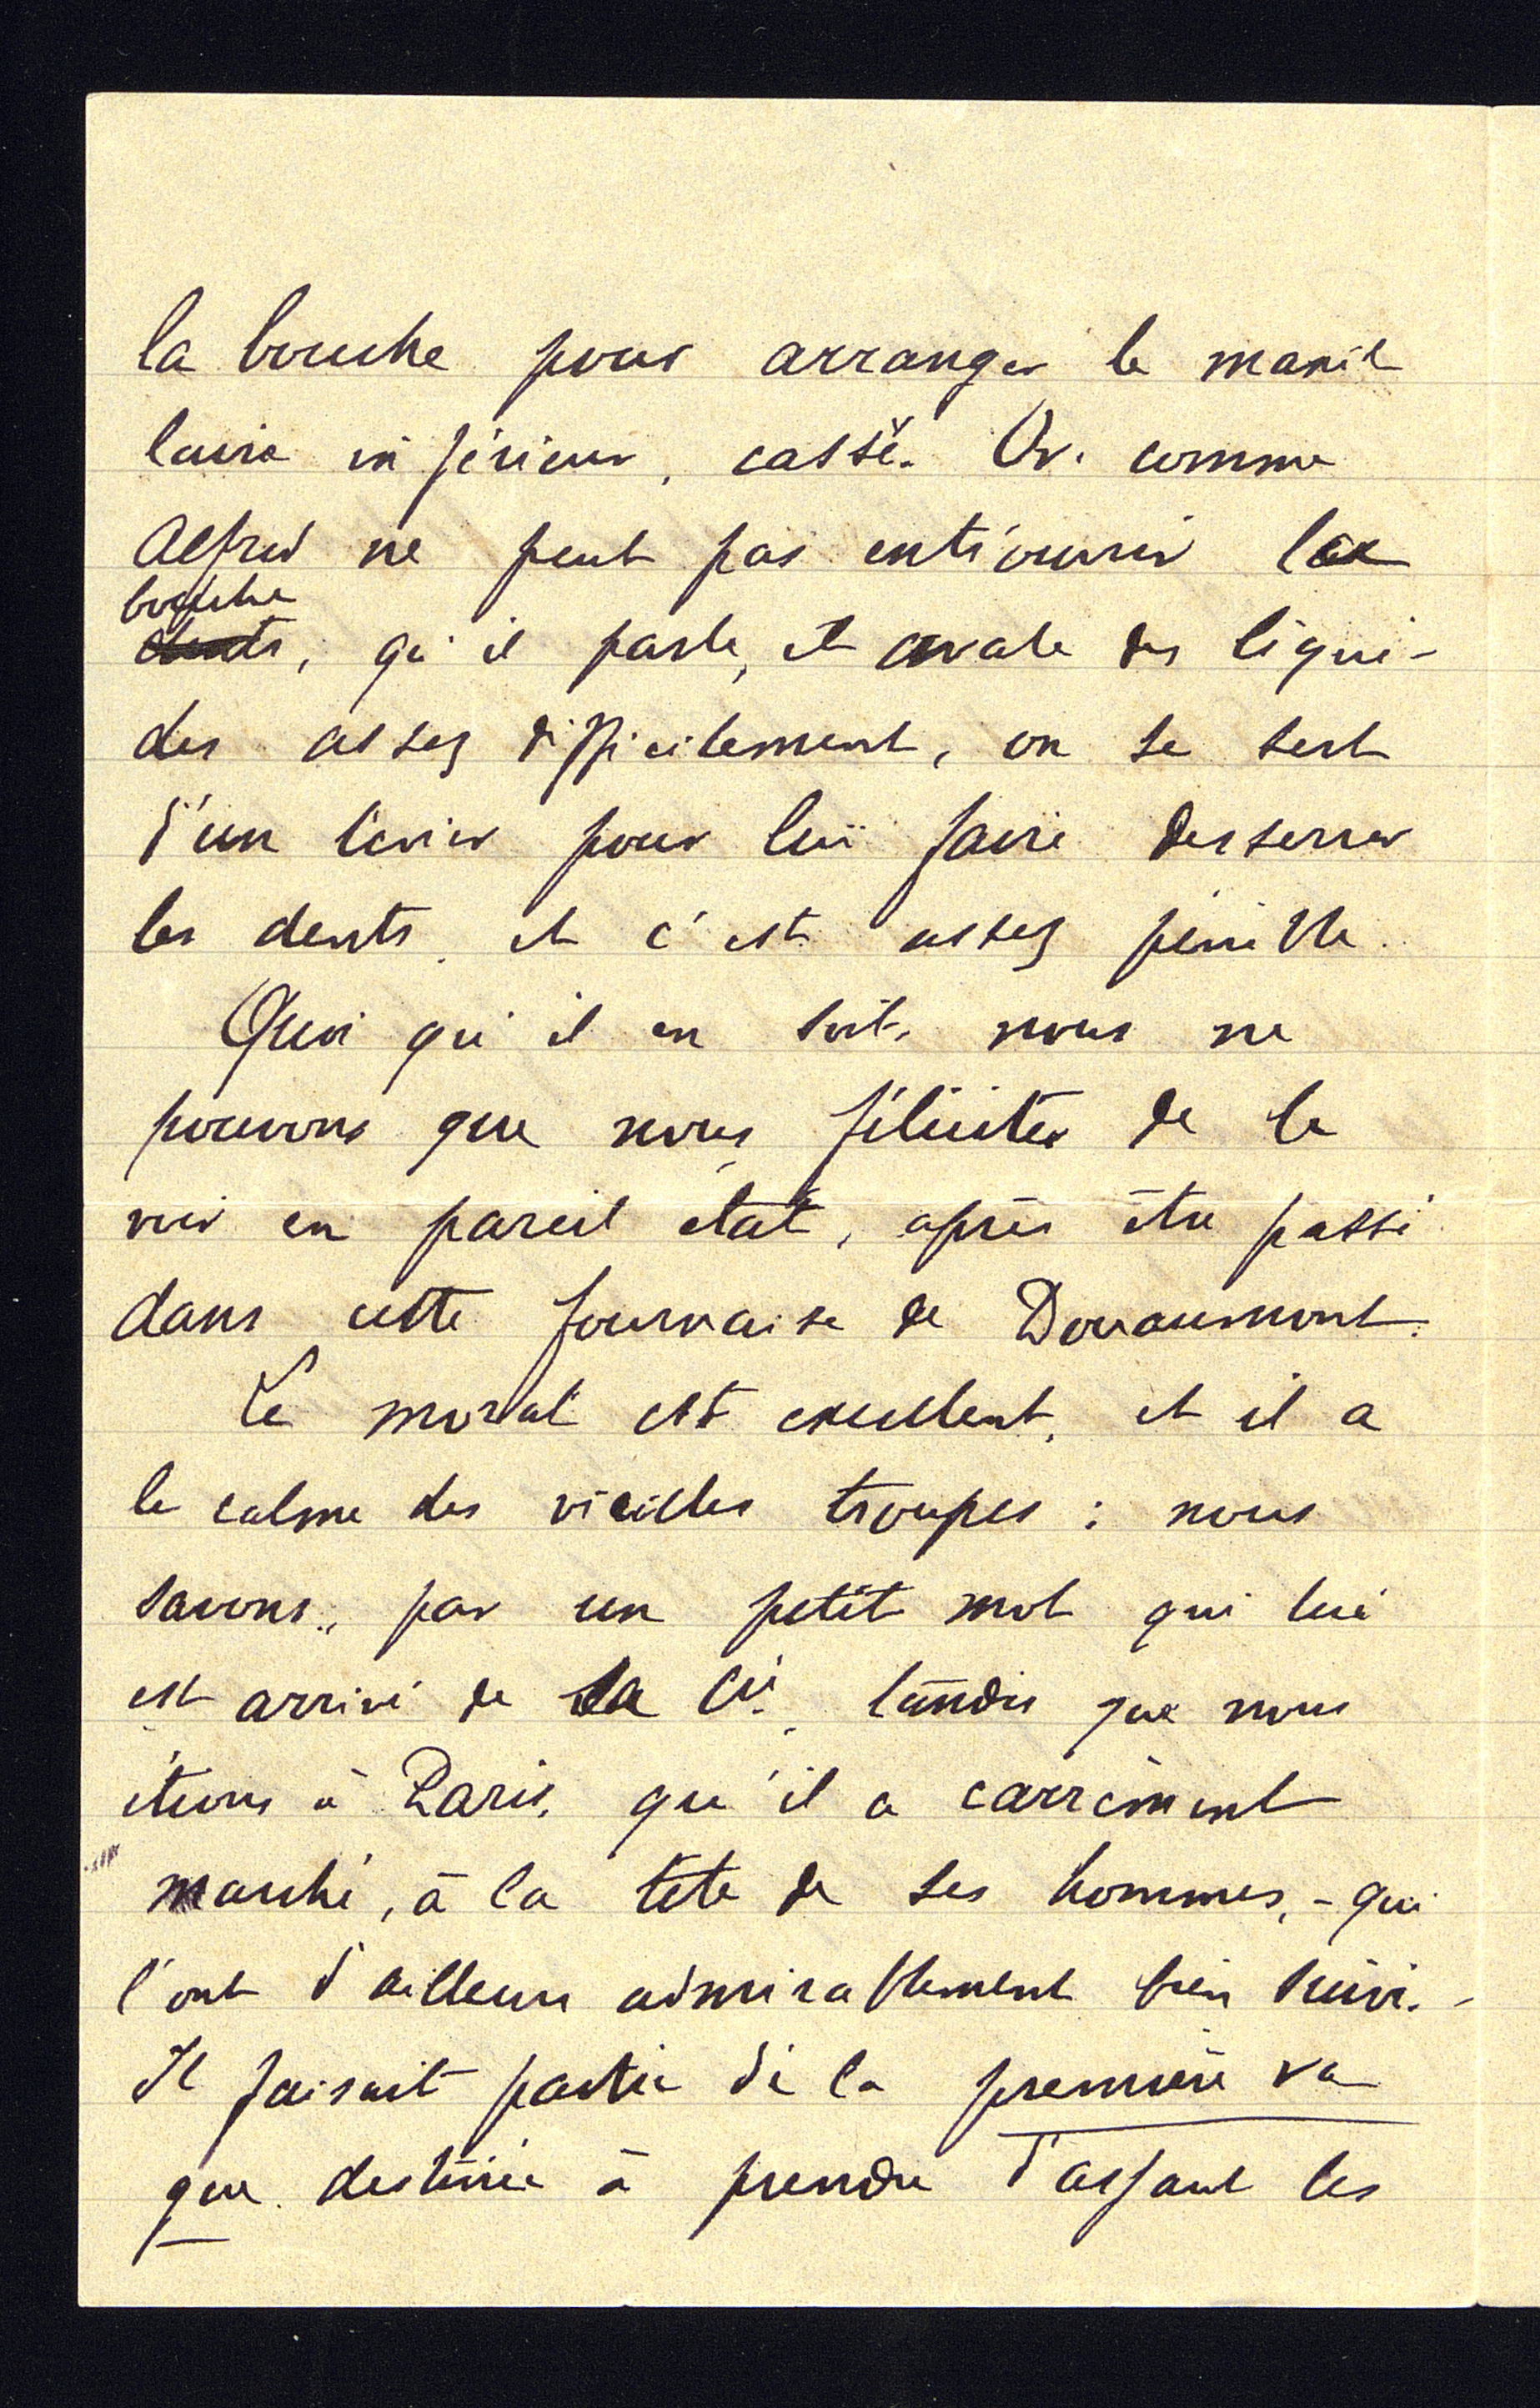 la bouche pour arranger le maxil
laire inférieur, cassé. Or. comme
Alfred ne peut pas entr'ouvrir la
bouche
dents, qu'il parle, et avale des liqui-
des assez difficilement, on se sert
d'un levier pour lui faire desserrer
les dents, et c'est assez pénible.
Quoi qu'il en soit, nous ne
pouvons que nous féliciter de le
voir en pareil état, après être passé
dans cette fournaise de Douaumont.
Le moral est excellent, et il a
le calme des vieilles troupes : nous
savons, par un petit mot qui lui
est arrivé de sa Cie, tandis que nous
étions à Paris, qu'il a carrément
marché, à la tête de ses hommes, - qui
l'ont d'ailleurs admirablement bien suivi. -
Il faisait partie de la première va
gue destinée à prendre d'assaut les